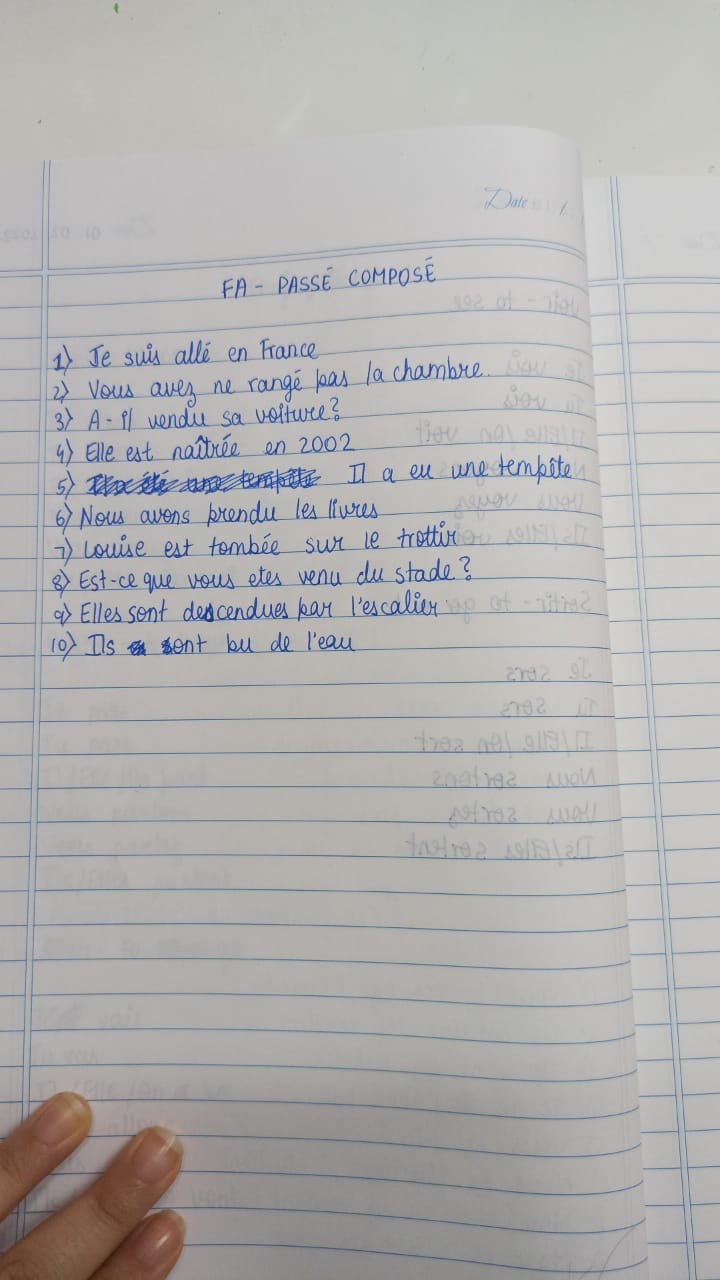 Date
FA - PASSÉ COMPOSÉ
1) Je suis allé en France
2) Vous avez ne rangé pas la chambre.
3) A-il vendu sa voiture?
4) Elle est naîtrée en 2002
5) Il a eu une tempête
6) Nous avons prendu les livres
7) Louise est tombée sur le trottir
8) Est-ce que vous etes venu du stade?
9) Elles sont descendues par l'escalier
10) Ils sont bu de l'eau